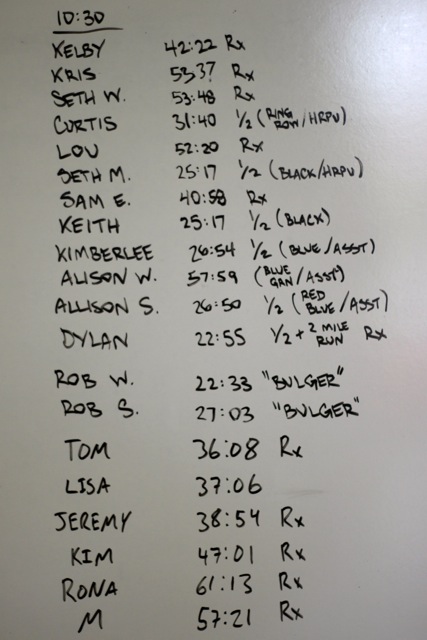 10:30
KELBY 42:22 Rx
KRIS 53:37 Rx
SETH W. 53:48 Rx
CURTIS 31:40 1/2 (RING ROW/HRPU)
LOU 52:20 Rx
SETH M. 25:17 1/2 (BLACK/HRPU)
SAM E. 40:58 Rx
KEITH 25:17 1/2 (BLACK)
KIMBERLEE 26:54 1/2 (BLUE/ASST)
ALISON W. 57:59 (BLUE GRN/ASST)
ALLISON S. 26:50 1/2 (RED BLUE/ASST)
DYLAN 22:55 1/2 + 2 MILE RUN Rx
ROB W. 22:33 "BULGER"
ROB S. 27:03 "BULGER"
TOM 36:08 Rx
LISA 37:06
JEREMY 38:54 Rx
KIM 47:01 Rx
RONA 61:13 Rx
M 57:21 Rx